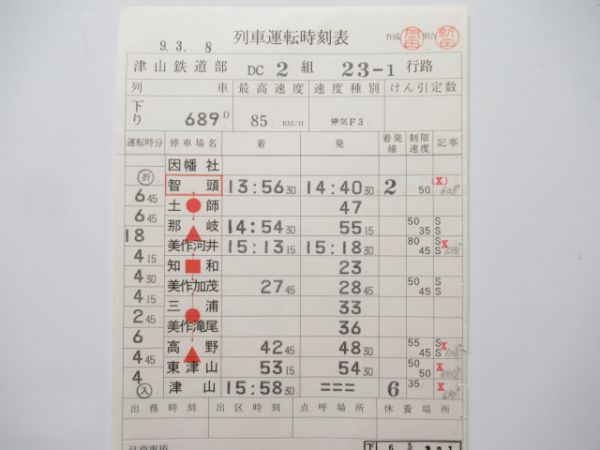 列車運転時刻表
9. 3. 8
作成 照合
津山鉄道部 DC 2 組 23-1 行路
列 車 最高速度 速度種別 けん引定数
下り 689D 85 KM/H 停気F3
運転時分 停車場名 着 発 着発線 制限速度 記事
因幡社
折 智頭 13:56 30 14:40 30 2 50 (X)
6 45 土師 47
6 45 那岐 14:54 30 55 15 50 S 35 S
18 美作河井 15:13 15 15:18 30 80 S 45 S X
4 15 知和 23
4 30 美作加茂 27 45 28 45 50 S 45 S
4 15 三浦 33
2 45 美作滝尾 36
6 高野 42 45 48 30 55 S 45 S X
4 45 東津山 53 15 54 30 50 50 X
4 津山 15:58 30 === 6 35 X
入
出務時刻 出区時刻 点呼場所 休養場所
注意事項
下 6 5